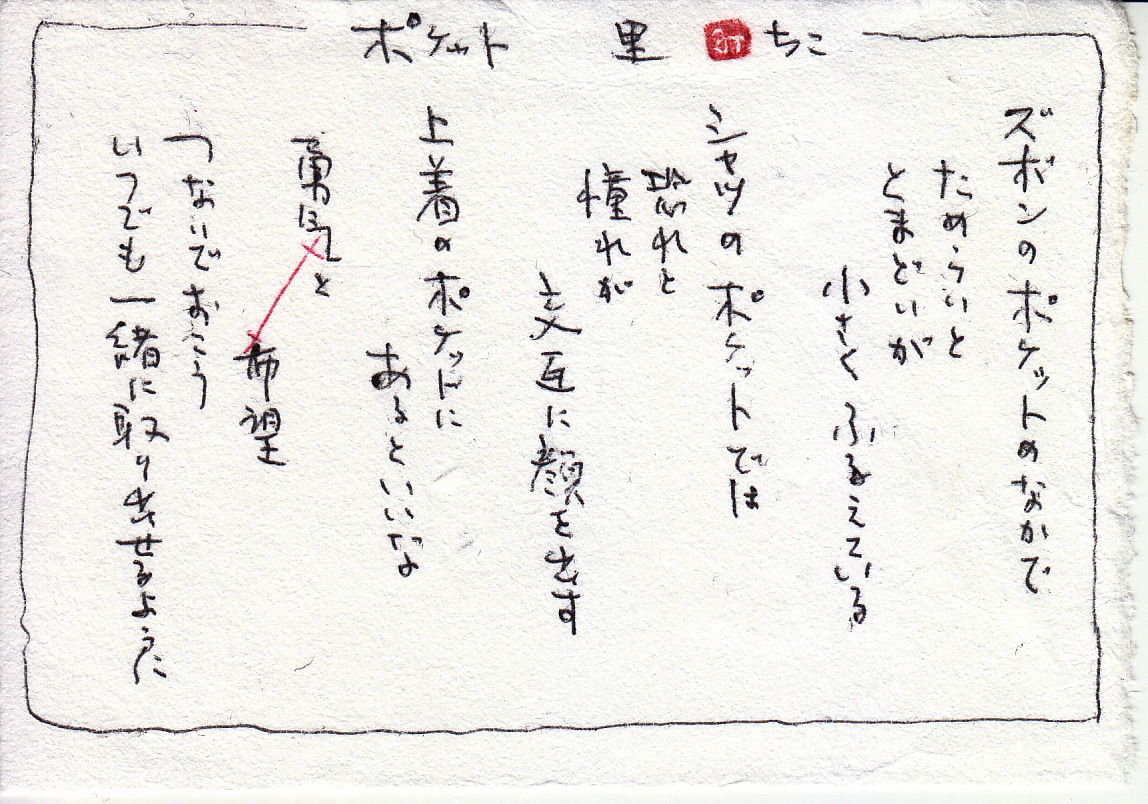 ポケット 里 ちこ
ズボンのポケットのなかで
ためらいと
とまどいが
小さく ふるえている
シャツのポケットでは
恐れと
憧れが
交互に顔を出す
上着のポケットに
あるといいな
勇気と
希望
つないでおこう
いつでも一緒に取り出せるように